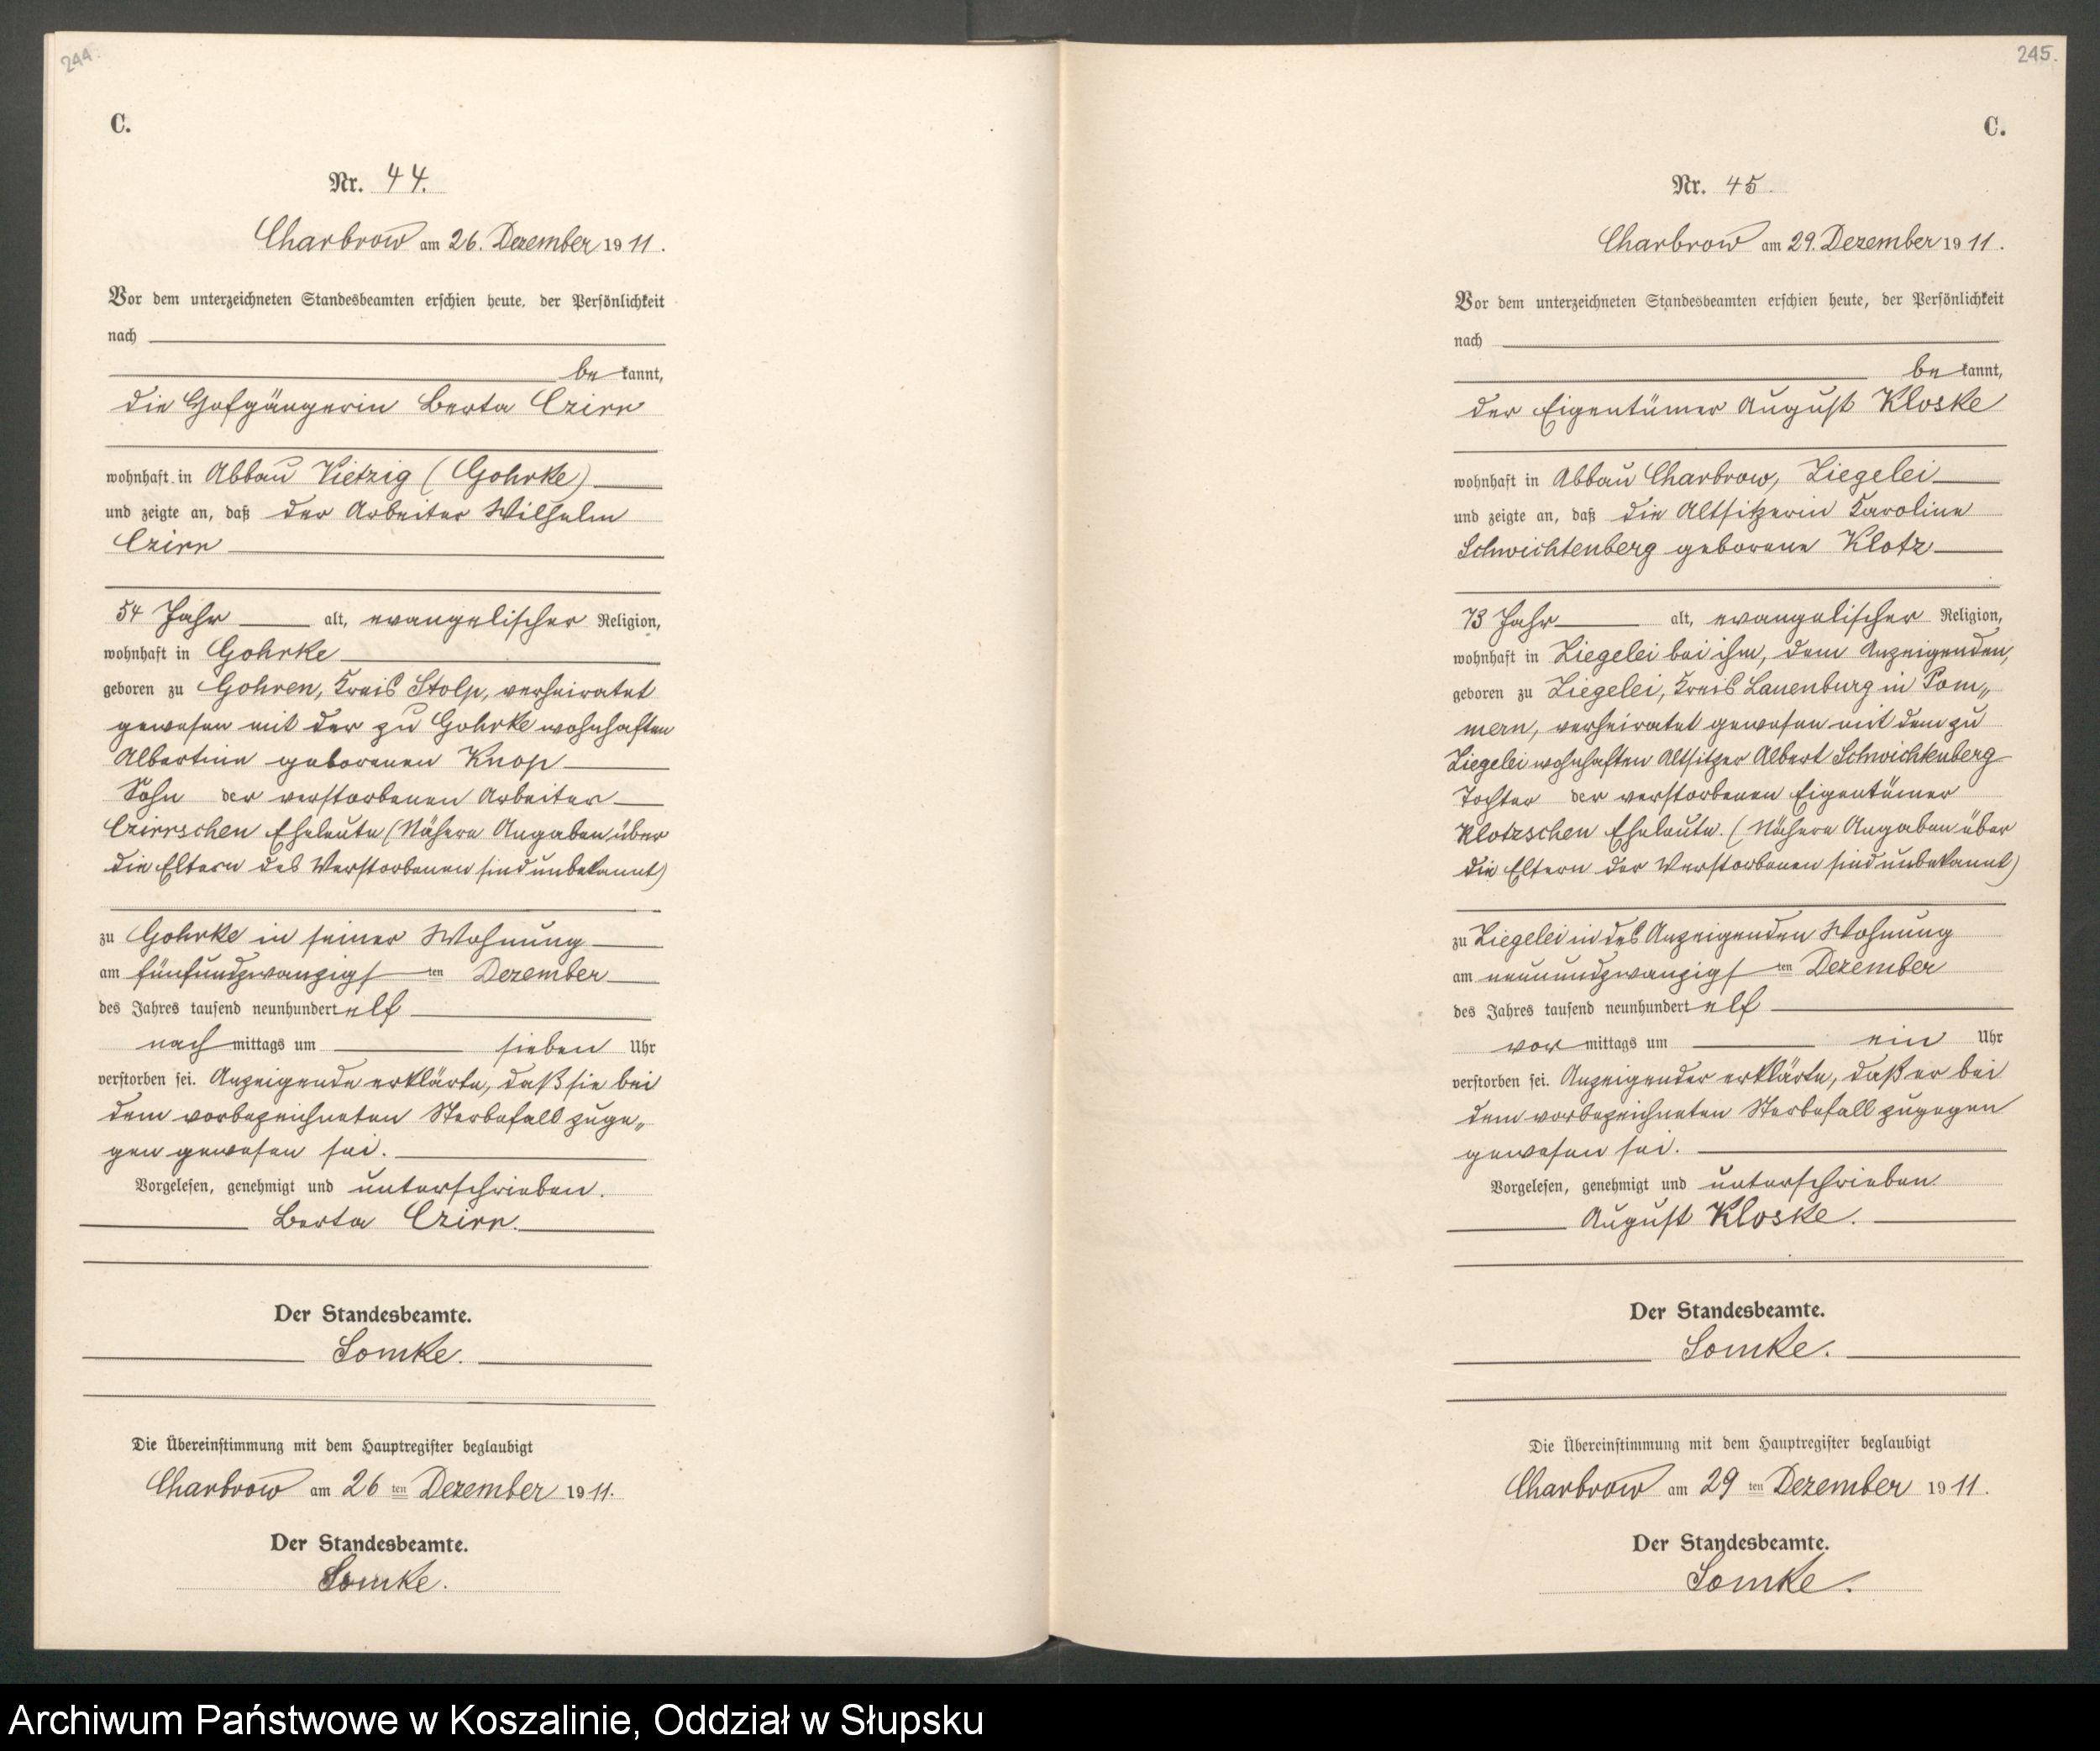 244.
C.
Nr. 44.
Charbrow am 26. Dezember 1911.
Vor dem unterzeichneten Standesbeamten erschien heute, der Persönlichkeit
nach
be kannt,
die Hofgängerin Berta Czirr
wohnhaft in Abbau Vietzig (Gohrke)
und zeigte an, daß der Arbeiter Wilhelm
Czirr
54 Jahr alt, evangelischer Religion,
wohnhaft in Gohrke
geboren zu Gohren, Kreis Stolp, verheiratet
gewesen mit der zu Gohrke wohnhaften
Albertine geborenen Knop
Sohn der verstorbenen Arbeiter
Czirrschen Eheleute (Nähere Angaben über
die Eltern des Verstorbenen sind unbekannt)
zu Gohrke in seiner Wohnung
am fünfundzwanzigsten Dezember
des Jahres tausend neunhundert elf
nachmittags um sieben Uhr
verstorben sei. Anzeigende erklärte, daß sie bei
dem vorbezeichneten Sterbefall zuge„
gen gewesen sei.
Vorgelesen, genehmigt und unterschrieben.
Berta Czirr.
Der Standesbeamte.
Lomke.
Die Übereinstimmung mit dem Hauptregister beglaubigt
Charbrow am 26 ten Dezember 1911.
Der Standesbeamte.
Lomke.
245.
C.
Nr. 45.
Charbrow am 29. Dezember 1911.
Vor dem unterzeichneten Standesbeamten erschien heute, der Persönlichkeit
nach
be kannt,
der Eigentümer August Kloske
wohnhaft in Abbau Charbrow, Ziegelei
und zeigte an, daß die Altsitzerin Karoline
Schwichtenberg geborene Klotz
73 Jahr alt, evangelischer Religion,
wohnhaft in Ziegelei bei ihm, dem Anzeigenden,
geboren zu Ziegelei, Kreis Lauenburg in Pom„
mern, verheiratet gewesen mit dem zu
Ziegelei wohnhaften Altsitzer Albert Schwichtenberg
Tochter der verstorbenen Eigentümer
Klotzschen Eheleute. (Nähere Angaben über
die Eltern der Verstorbenen sind unbekannt)
zu Ziegelei in des Anzeigenden Wohnung
am neunundzwanzigsten Dezember
des Jahres tausend neunhundert elf
vormittags um ein Uhr
verstorben sei. Anzeigender erklärte, daß er bei
dem vorbezeichneten Sterbefall zugegen
gewesen sei.
Vorgelesen, genehmigt und unterschrieben.
August Kloske.
Der Standesbeamte.
Lomke.
Die Übereinstimmung mit dem Hauptregister beglaubigt
Charbrow am 29 ten Dezember 1911.
Der Standesbeamte.
Lomke.
Archiwum Państwowe w Koszalinie, Oddział w Słupsku